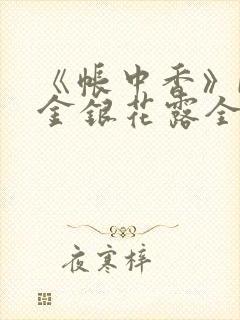 《帐中香》
金银花露全
夜寒梓